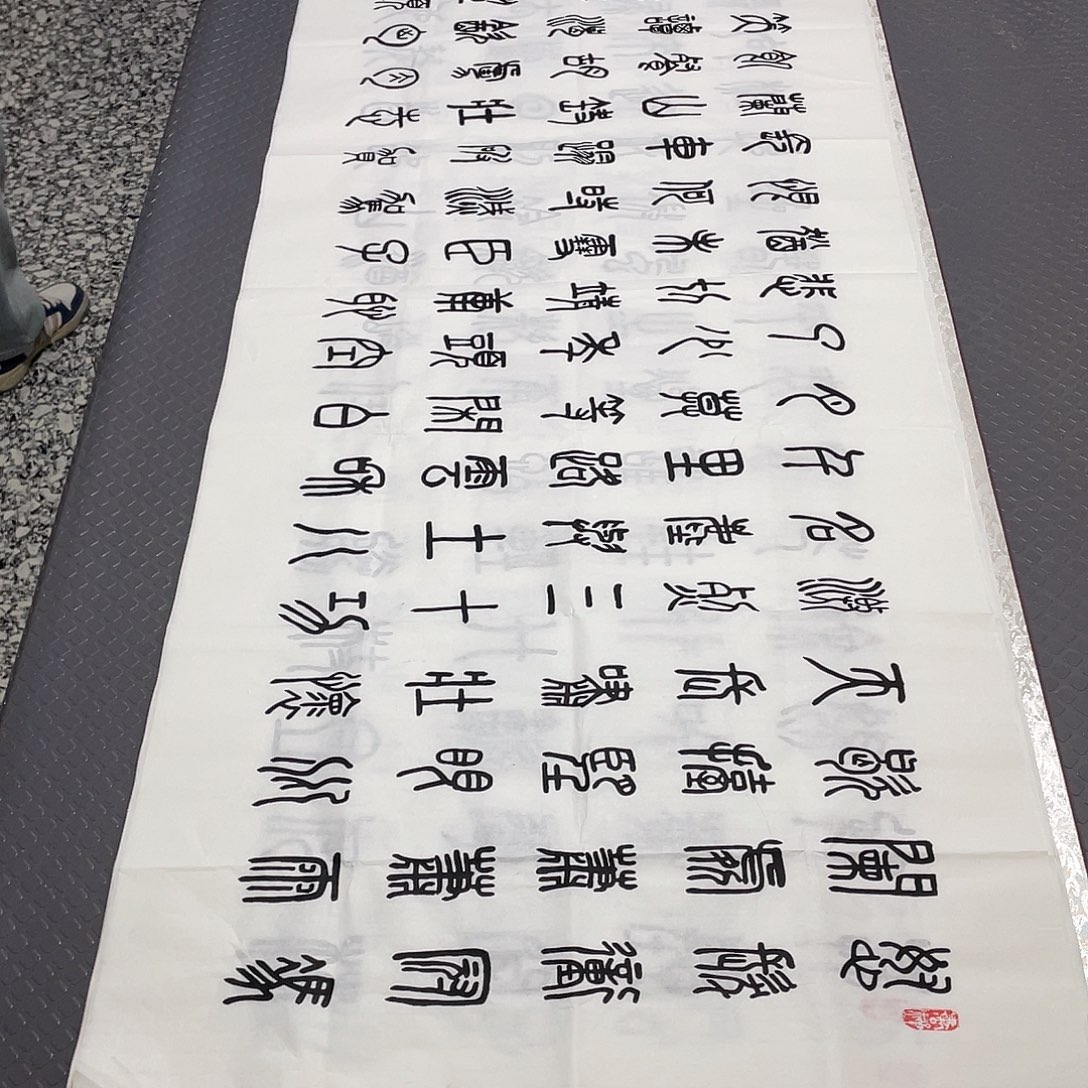 怒髮衝冠憑
闌處瀟瀟雨
歇擡望眼仰
天長嘯壯懷
激烈三十功
名塵與土八
千里路雲和
月莫等閒白
了少年頭空
悲切靖康恥
猶未雪臣子
恨何時滅駕
長車踏破賀
蘭山缺壯志
飢餐胡虜肉
笑談渴飲匈